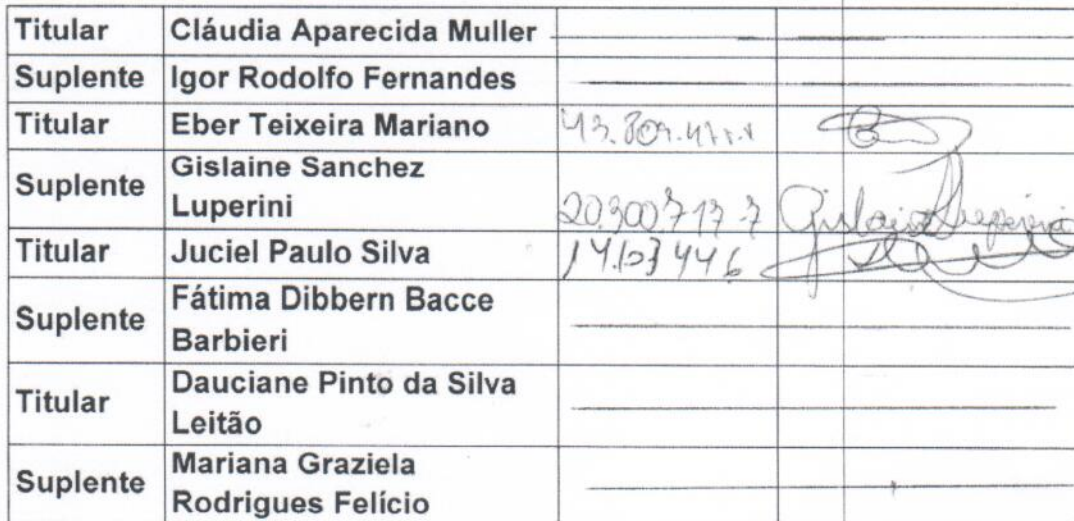 Titular Cláudia Aparecida Muller
Suplente Igor Rodolfo Fernandes
Titular Eber Teixeira Mariano
Suplente Gislaine Sanchez
Luperini 20.300.717-7
Titular Juciel Paulo Silva
Suplente Fátima Dibbern Bacce
Barbieri
Titular Dauciane Pinto da Silva
Leitão
Suplente Mariana Graziela
Rodrigues Felício